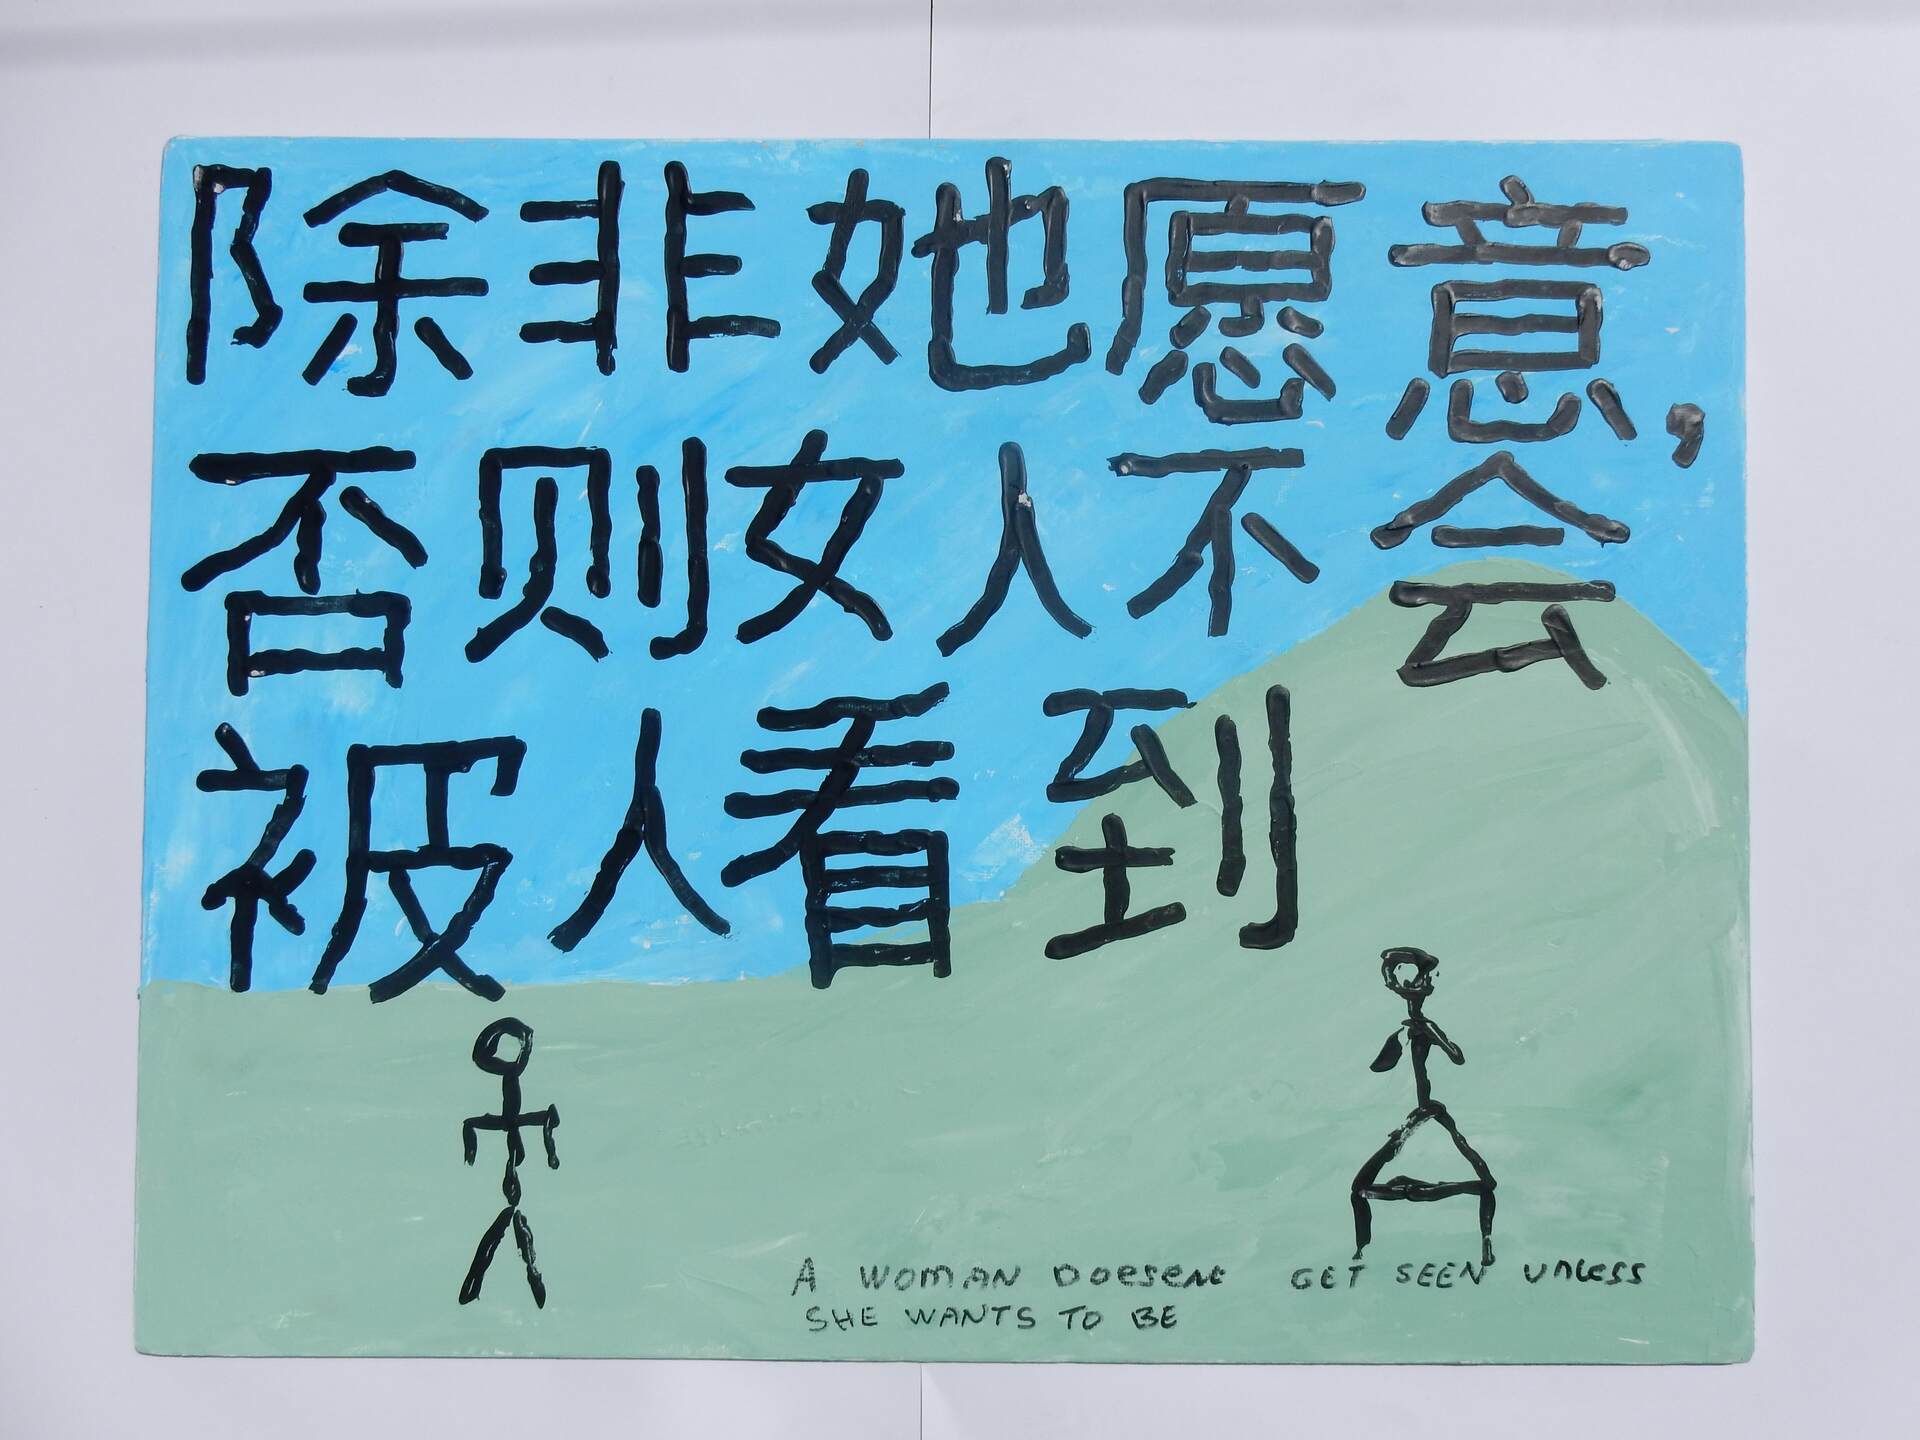 除非她愿意,
否则女人不会
被人看到
A WOMAN DOESENt GET SEEN UNLESS
SHE WANTS TO BE